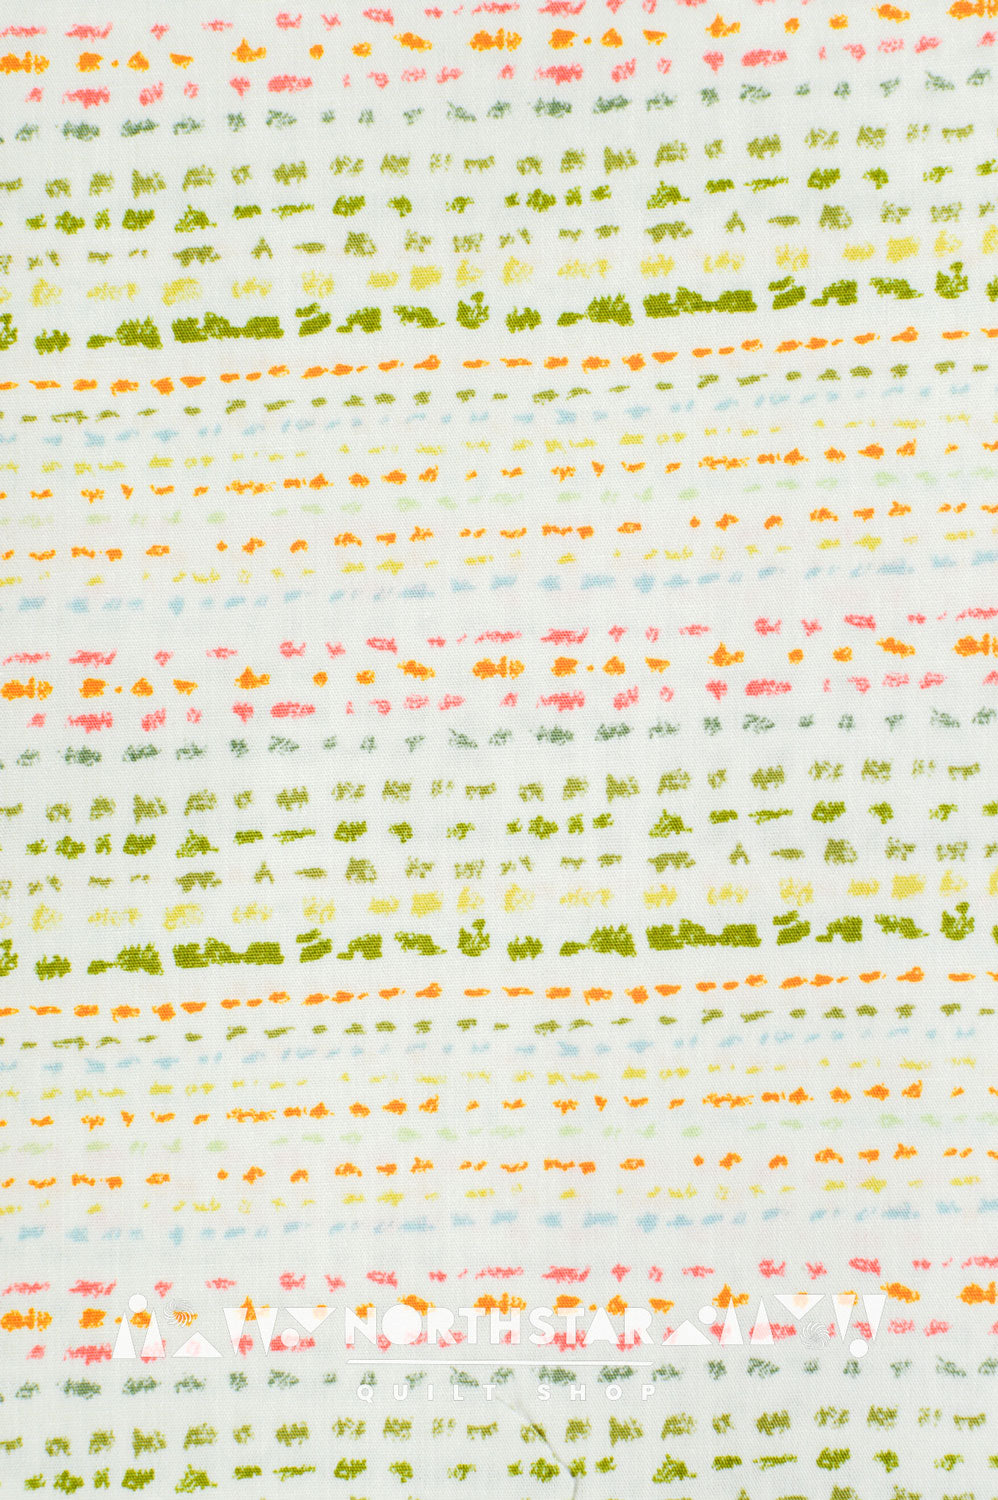 NORTH STAR
QUILT SHOP